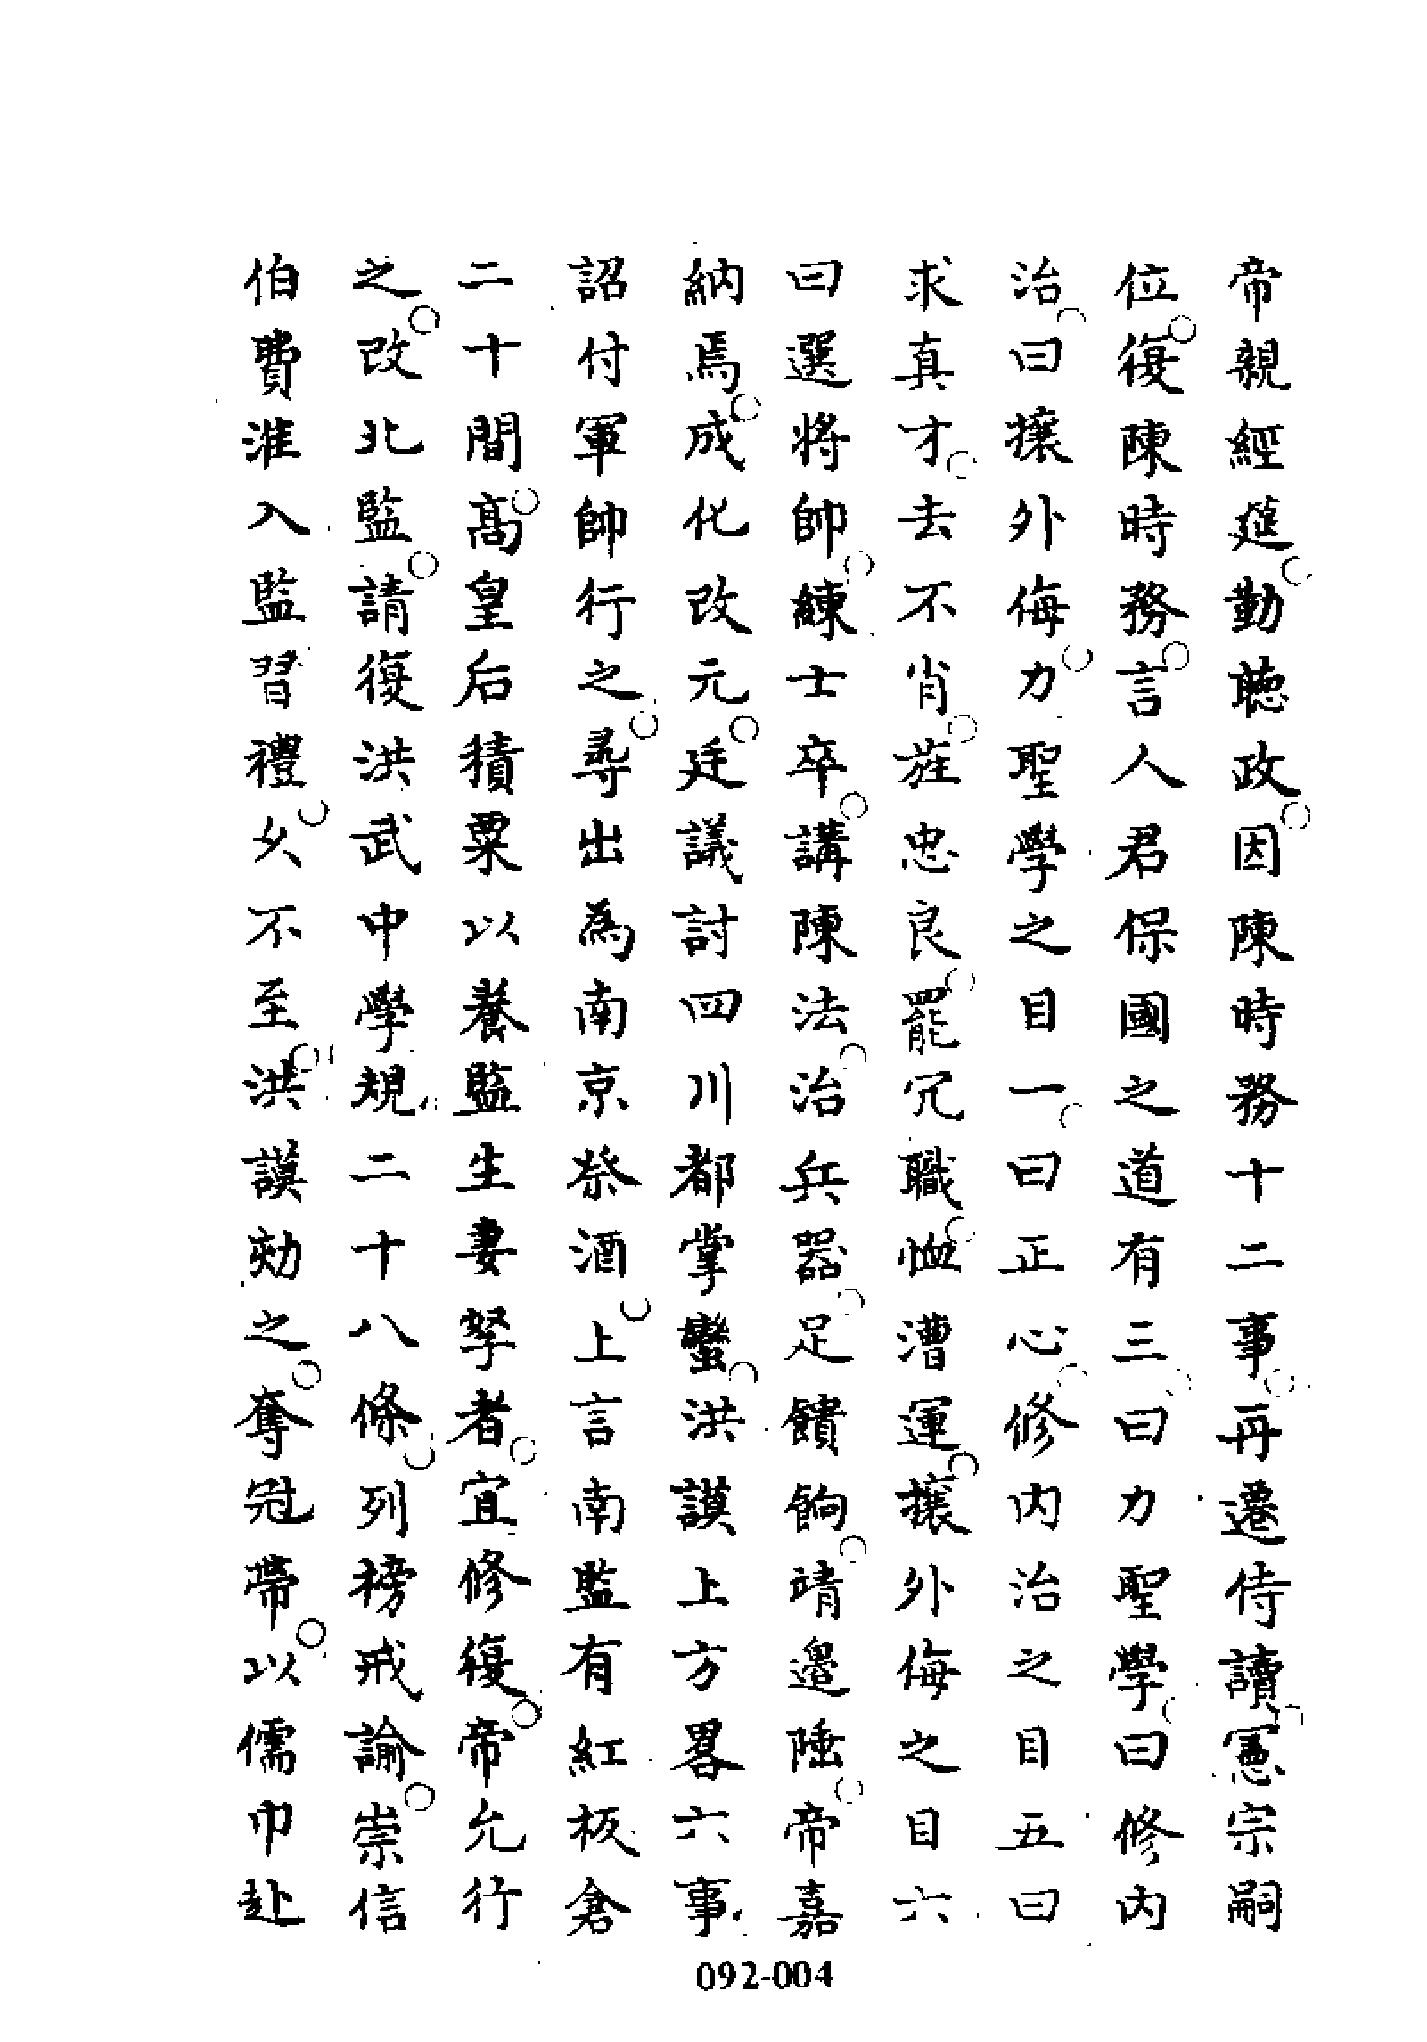 帝親經筵勤聽政因陳時務十二事再遷侍讀憲宗嗣
位復陳時務言人君保國之道有三曰力聖學曰修內
治曰攘外侮力聖學之目一曰正心修內治之目五曰
求真才去不肖旌忠良罷冗職恤漕運攘外侮之目六
曰選將帥練士卒講陳法治兵器足饋餉靖邊陲帝嘉
納焉成化改元廷議討四川都掌蠻洪謨上方畧六事
詔付軍帥行之尋出為南京祭酒上言南監有紅板倉
二十間高皇后積粟以養監生妻孥者宜修復帝允行
之改北監請復洪武中學規二十八條列榜戒諭崇信
伯費淮入監習禮久不至洪謨劾之奪冠帶以儒巾赴
092-004